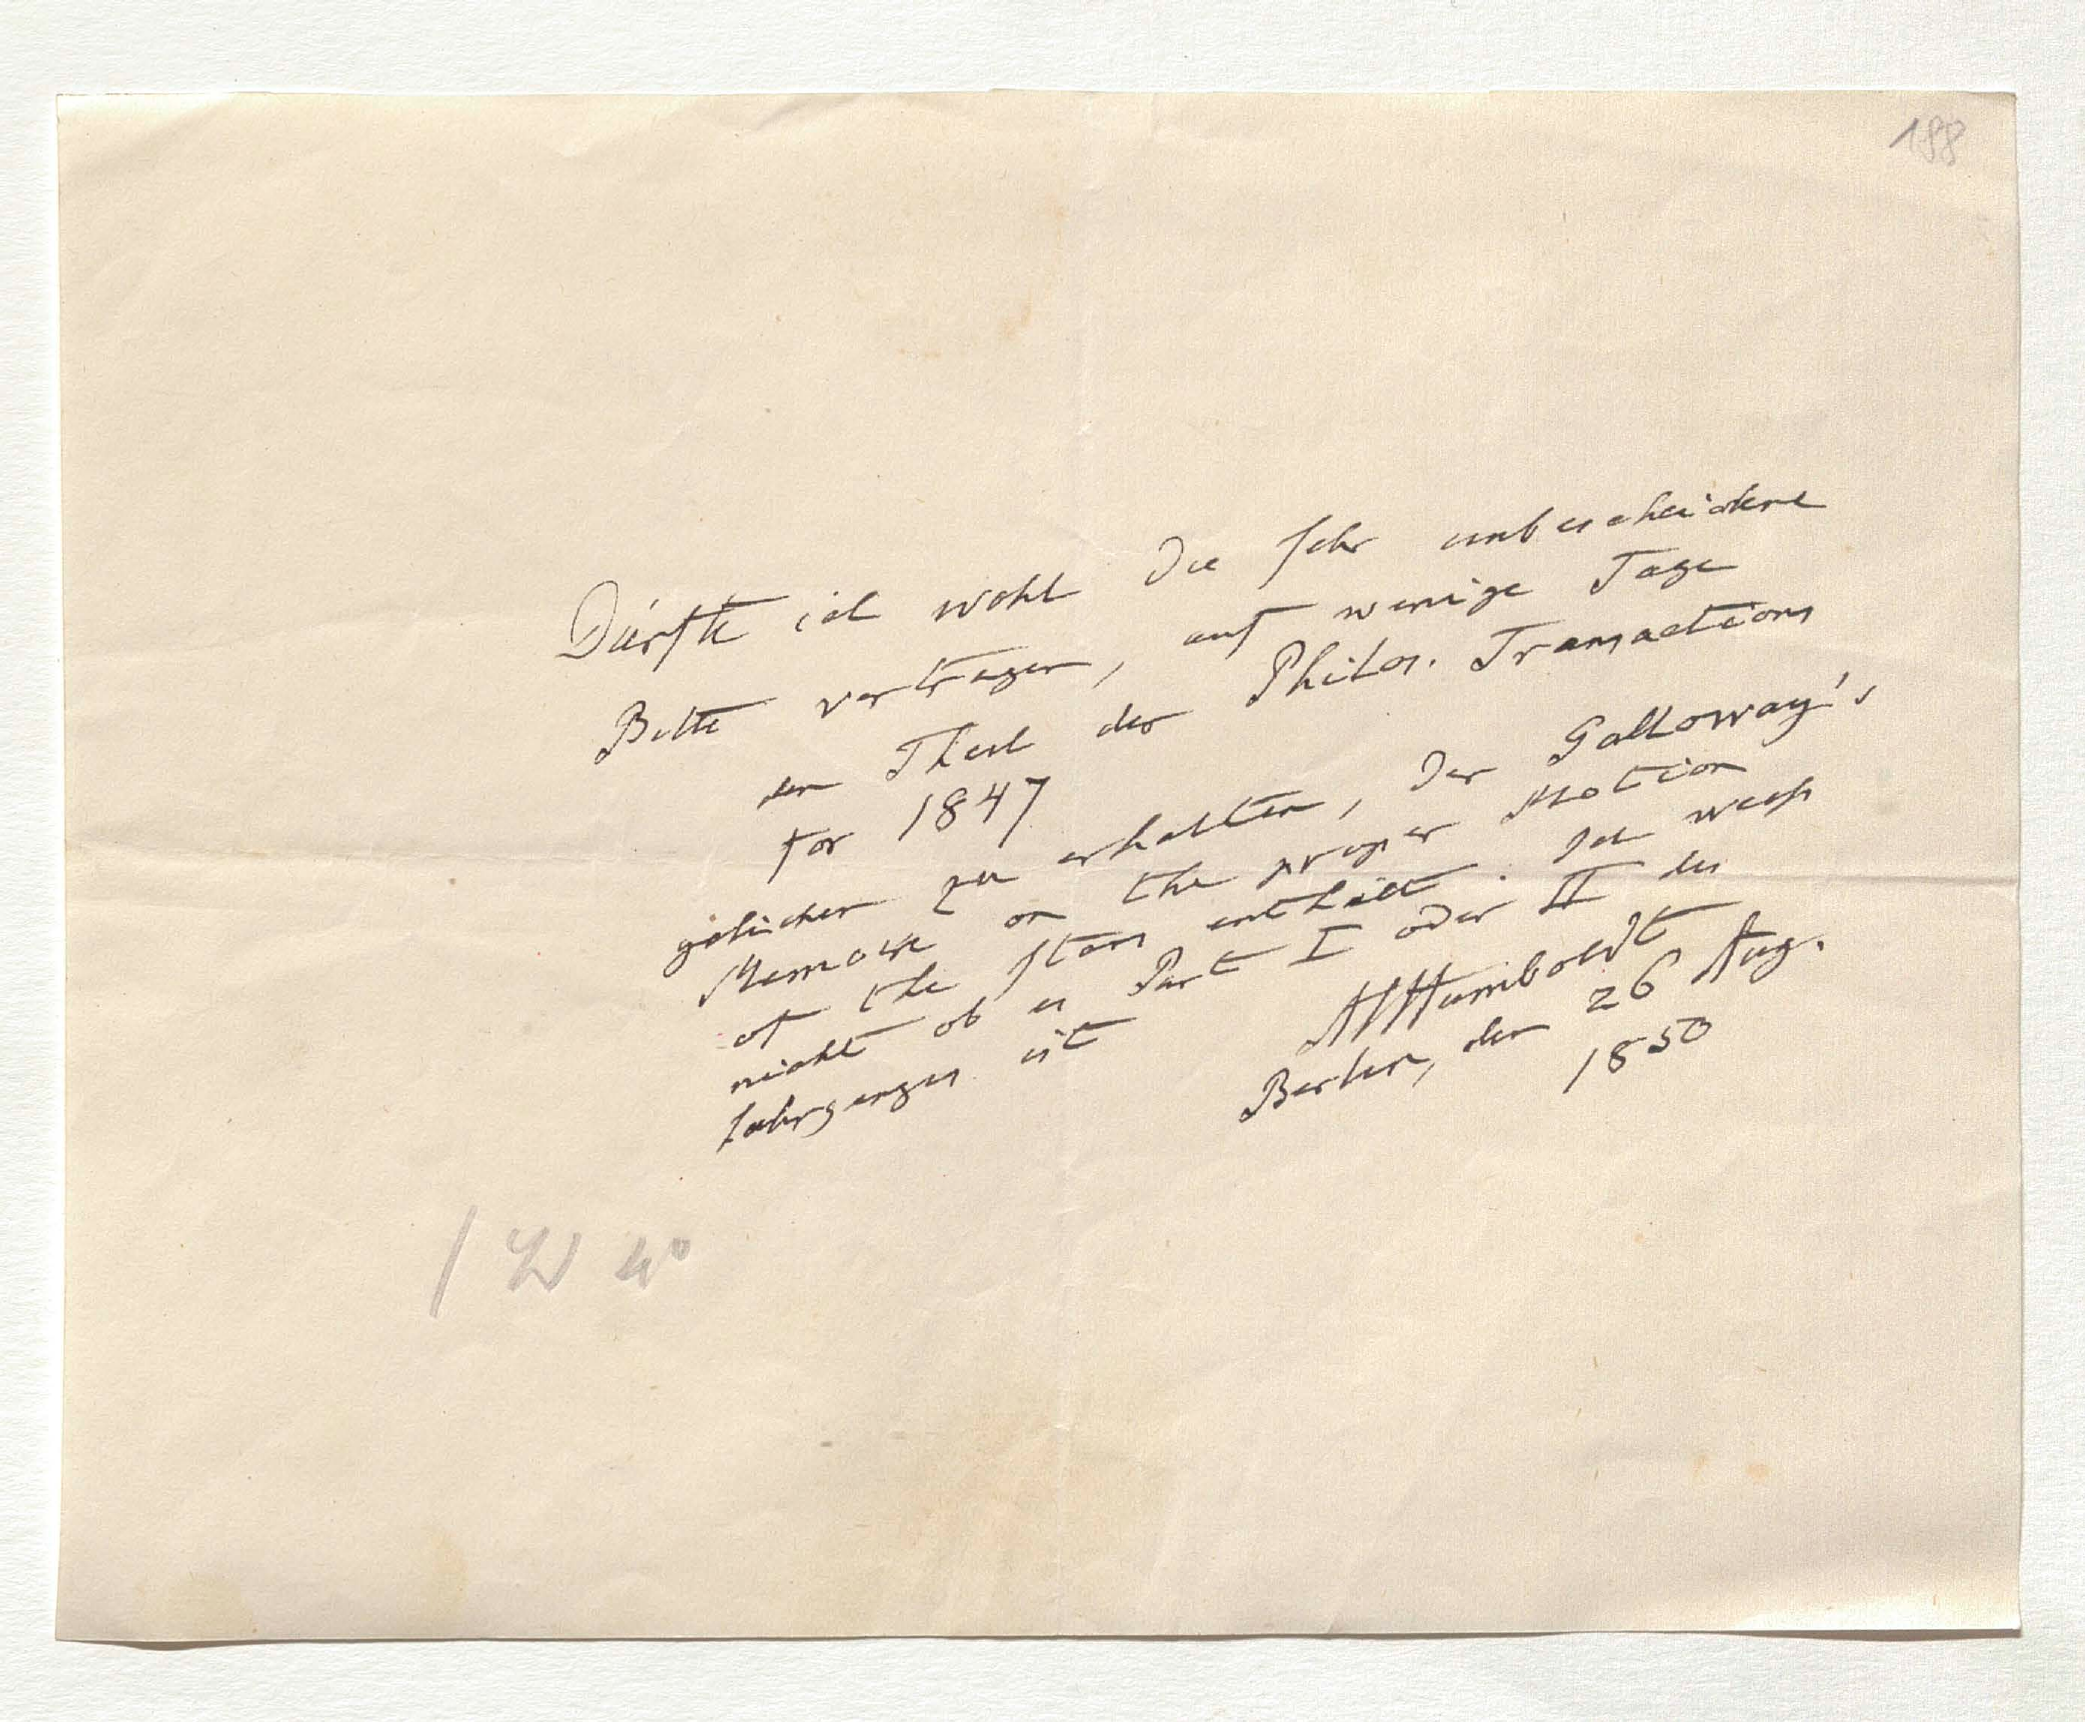 188
Dürfte ich wohl die sehr unbescheidene
Bitte vortragen, auf wenige Tage
den Theil der Philos. Transactions
for 1847
geliehen zu erhalten, der Galloway's
Memoir on the proper Motion
of the stars enthält. Ich weiß
nicht ob es Part I oder II des
Jahrganges ist
AlHumboldt
Berlin, den 26 Aug.
1850
1 W 4°